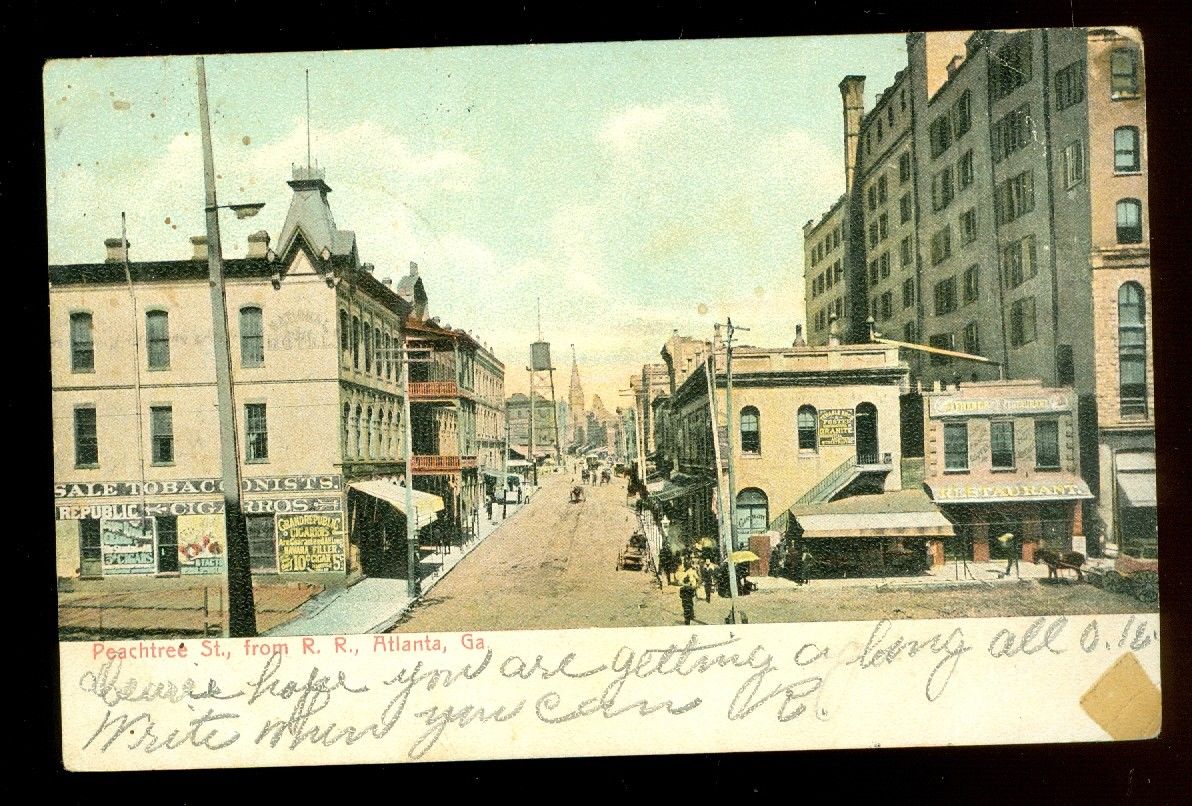 NATIONAL
HOTEL
SALE TOBACCONISTS
REPUBLIC CIGARROS
GRAND REPUBLIC
CIGARROS
HAVANA FILLER
10¢ CIGAR 5¢
CIGARS
GRANITE
RESTAURANT
Peachtree St., from R. R., Atlanta, Ga.
hope you are getting along all O.K.
Write when you can R.